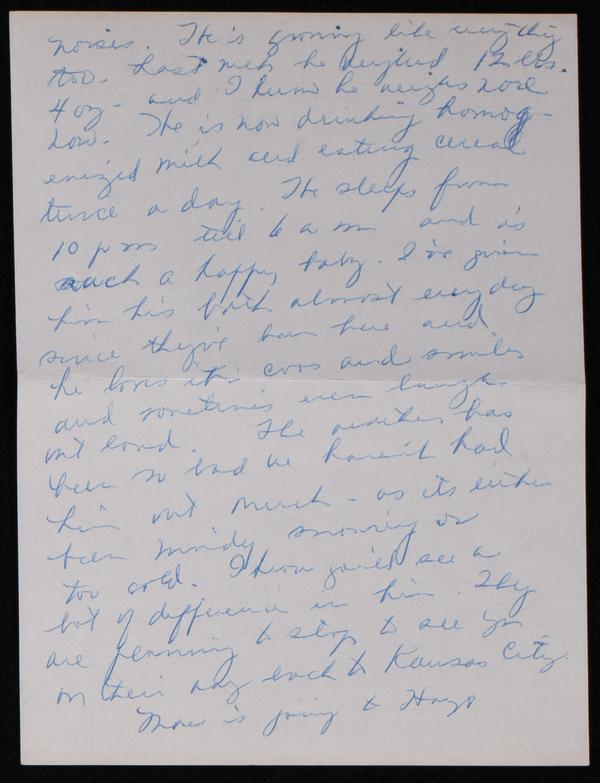 noises. He is growing like everything
too. Last week he weighed 12 lbs.
4 oz - and I know he weighs more
now. He is now drinking homog-
enized milk and eating cereal
twice a day. He sleeps from
10 p m till 6 a m and is
such a happy baby. I've given
him his bath almost every day
since they've been here and
he loves it - coos and smiles
and sometimes even laughs
out loud. The weather has
been so bad we haven't had
him out much - as its either
been windy snowing or
too cold. I know you'll see a
lot of difference in him. They
are planning to stop to see you
on their way back to Kansas City.
is going to Hays